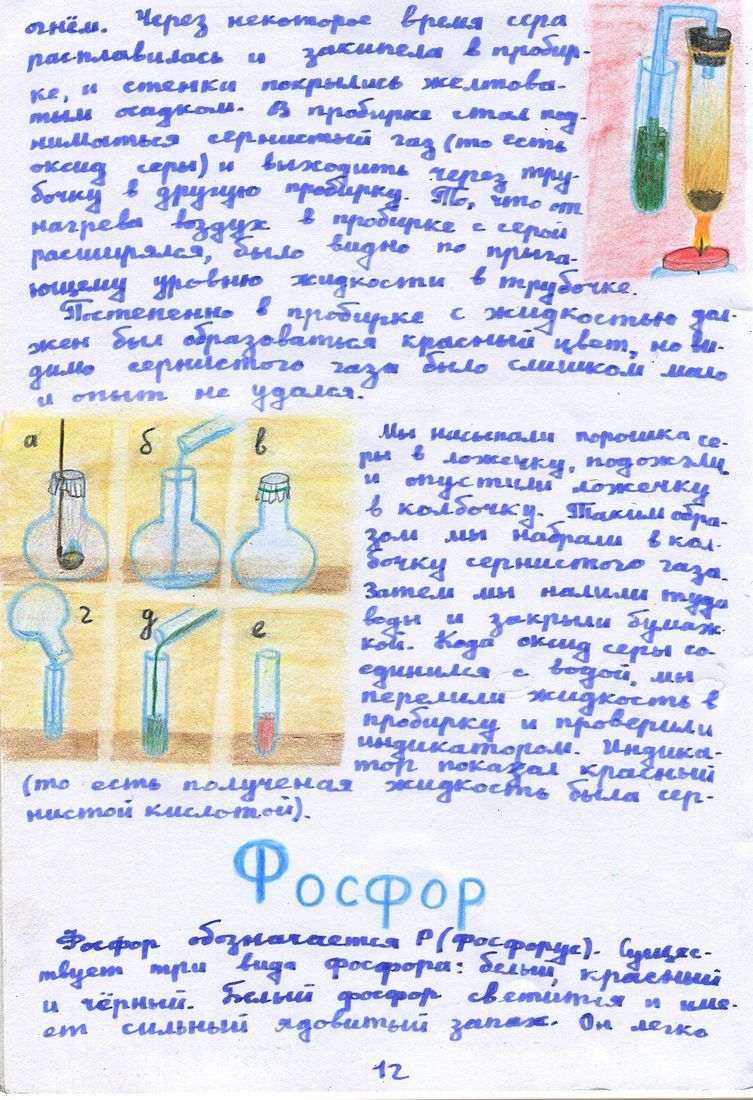 огнём. Через некоторое время сера
расплавилась и закипела в пробир-
ке, и стенки покрылись желтова-
тым осадком. В пробирке стал под-
ниматься сернистый газ (то есть
оксид серы) и выходить через тру-
бочку в другую пробирку. То, что от
нагрева воздух в пробирке с серой
расширялся, было видно по прыга-
ющему уровню жидкости в трубочке.
Постепенно в пробирке с жидкостью дол-
жен был образоваться красный цвет, но ви-
димо сернистого газа было слишком мало
и опыт не удался.
а
б
в
г
д
е
Мы насыпали порошка се-
ры в ложечку, подожгли
и опустили ложечку
в колбочку. Таким обра-
зом мы набрали в кол-
бочку сернистого газа.
Затем мы налили туда
воды и закрыли бумаж
кой. Кода оксид серы со-
единился с водой, мы
перелили жидкость в
пробирку и проверили
индикатором. Индика-
тор показал красный
(то есть полученая жидкость была сер-
нистой кислотой).
Фосфор
Фосфор обозначается P (Фосфорус). Сущес-
твует три вида фосфора: белый, красный
и чёрный. Белый фосфор светится и име-
ет сильный ядовитый запах. Он легко
12